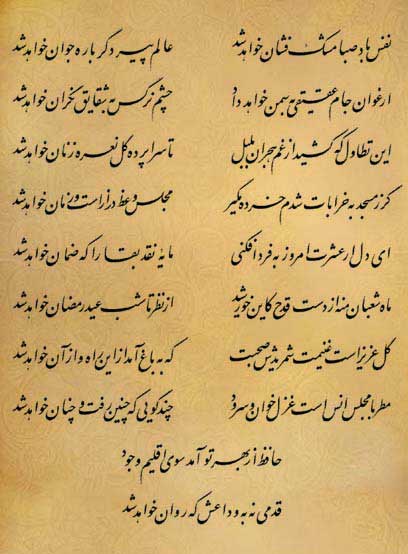 نفس باد صبا مشک فشان خواهد شد عالم پیر دگر باره جوان خواهد شد
ارغوان جام عقیقی به سمن خواهد داد چشم نرگس به شقایق نگران خواهد شد
این تطاول که کشید از غم هجران بلبل تا سراپرده گل نعره زنان خواهد شد
گر ز مسجد به خرابات شدم خرده مگیر مجلس وعظ دراز است و زمان خواهد شد
ای دل ار عشرت امروز به فردا فکنی مایه نقد بقا را که ضمان خواهد شد
ماه شعبان منه از دست قدح کاین خورشید از نظر تا شب عید رمضان خواهد شد
گل عزیز است غنیمت شمریدش صحبت که به باغ آمد از این راه و از آن خواهد شد
مطربا مجلس انس است غزل خوان و سرود چند گویی که چنین رفت و چنان خواهد شد
حافظ از بهر تو آمد سوی اقلیم وجود
قدمی نه به وداعش که روان خواهد شد